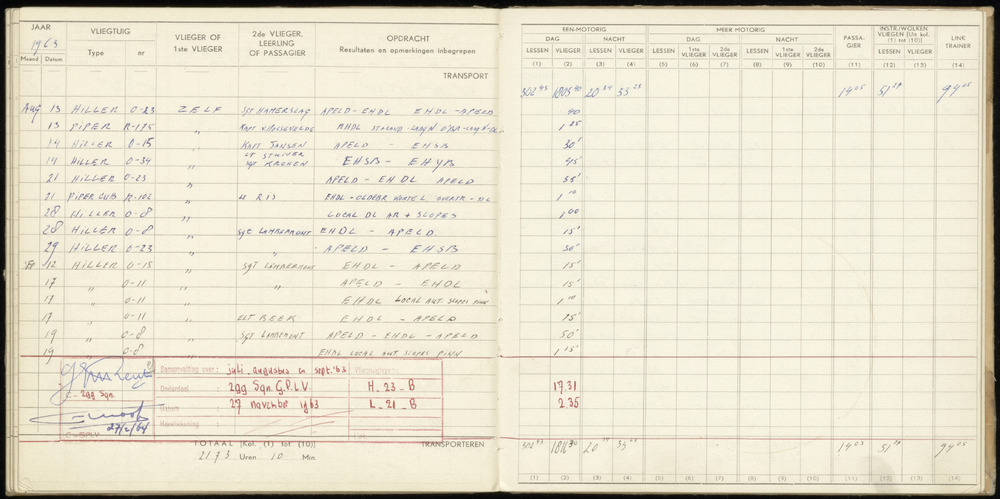 JAAR 1963
VLIEGTUIG
VLIEGER OF 1ste VLIEGER
2de VLIEGER, LEERLING OF PASSAGIER
OPDRACHT
Resultaten en opmerkingen inbegrepen
Maand Datum Type nr
TRANSPORT
EEN-MOTORIG
MEER MOTORIG
DAG NACHT DAG NACHT
LESSEN VLIEGER LESSEN VLIEGER LESSEN 1ste VLIEGER 2de VLIEGER LESSEN 1ste VLIEGER 2de VLIEGER
PASSA-GIER
INSTR/WOLKEN VLIEGEN (Uit kol. (1) tot (10))
LESSEN VLIEGER
LINK TRAINER
(1) (2) (3) (4) (5) (6) (7) (8) (9) (10) (11) (12) (13) (14)
Aug 13 HILLER O-23 ZELF Sgt HAMERSLAG APELD-EHDL EHDL-APELD 40
13 PIPER R-175 " Kapt 1 25
14 HILLER O-15 " Kapt JANSEN APELD - EHSB 30'
14 HILLER O-34 " Lt STUIVER Sgt KROHEN EHSB - EHYB 45'
21 HILLER O-23 " APELD - EHDL APELD 35'
21 PIPER CUB R-102 " EHDL - 1 10
28 HILLER O-8 " LOCAL DL AR + SLOPES 1 00
28 HILLER O-8 " Sgt LAMBERMONT EHDL - APELD. 15'
29 HILLER O-23 " " APELD - EHSB 30'
12 HILLER O-15 " Sgt LAMBERMONT EHDL - APELD 15'
17 " O-11 " APELD - EHDL 15'
17 " O-11 " EHDL LOCAL AUT. SLOPES PINN 1 10
17 " O-11 " ELT BEEK EHDL - APELD 15'
19 " O-8 " Sgt LAMBERMONT APELD - EHDL - APELD 50'
19 " O-8 " EHDL LOCAL AUT. SLOPES PINN 1 15'
Samenvatting over : juli, augustus en sept. '63 Vliegtuigtype:
Onderdeel : 299 Sqn. G.P.L.V. H-23-B 17.31
Datum : 27 november 1963 L-21-B 2.35
Handtekening :
C- 299 Sqn.
27/2/64
C-GPLV
TOTAAL (Kol. (1) tot (10)) TRANSPORTEREN
2173 Uren 10 Min
(1) (2) (3) (4) (5) (6) (7) (8) (9) (10) (11) (12) (13) (14)